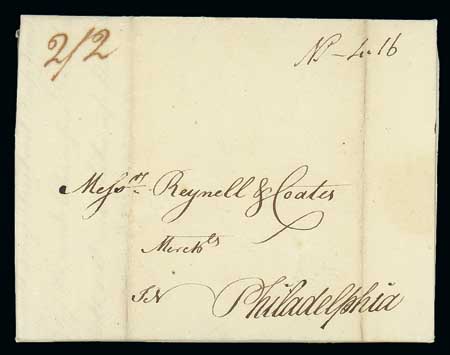 2/2
N° - 4..16
Messrs. Reynell & Coates
Merchts
IN Philadelphia